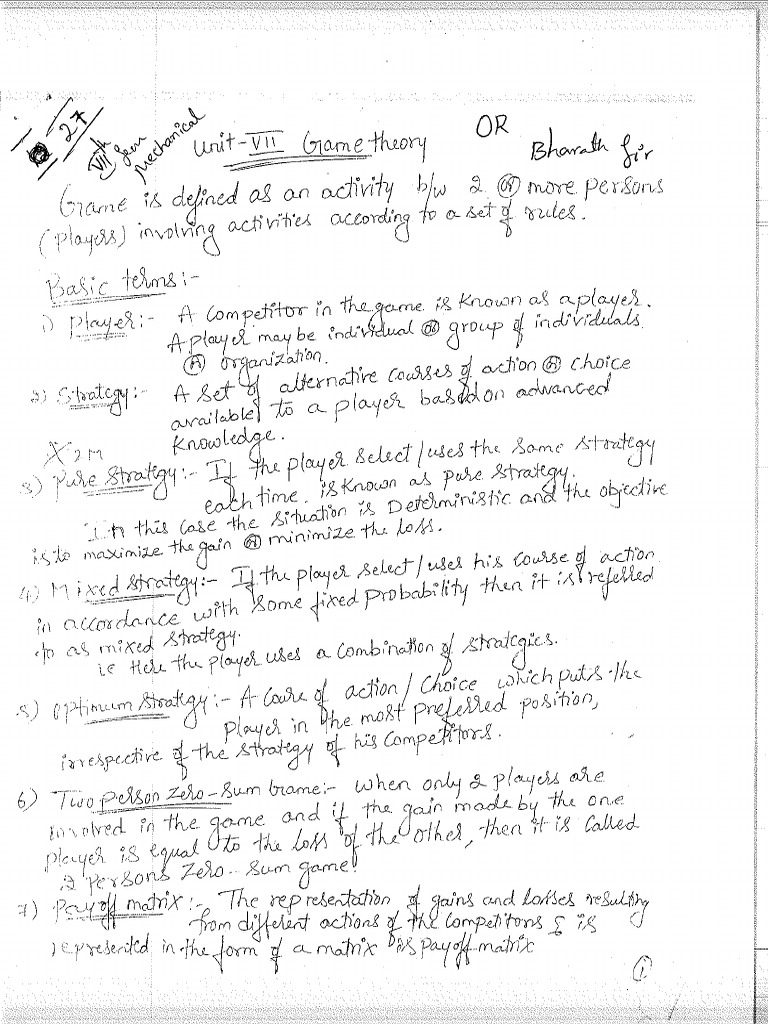 27
VIIth Sem
Mechanical
Unit-VII Game theory
OR
Bharath Sir
Game is defined as an activity b/w 2 or more persons
(players) involving activities according to a set of rules.
Basic terms:-
1) Player:- A Competitor in the game is known as a player.
A player may be individual or group of individuals
or organization.
2) Strategy:- A set of alternative courses of action or choice
available to a player based on advanced
Knowledge.
X 2M
3) Pure Strategy:- If the player select/uses the same strategy
each time. is known as pure strategy.
In this case the situation is Deterministic and the objective
is to maximize the gain or minimize the loss.
4) Mixed strategy:- If the player select/uses his course of action
in accordance with some fixed probability then it is referred
to as mixed strategy.
ie Here the player uses a combination of strategies.
5) Optimum strategy:- A Coure of action/Choice which puts the
player in the most preferred position,
irrespective of the strategy of his competitors.
6) Two person zero-sum Game:- when only 2 players are
involved in the game and if the gain made by the one
player is equal to the loss of the other, then it is called
2 persons zero-sum game.
7) Pay off matrix:- The representation of gains and losses resulting
from different actions of the competitors & is
represented in the form of a matrix is pay off matrix
1